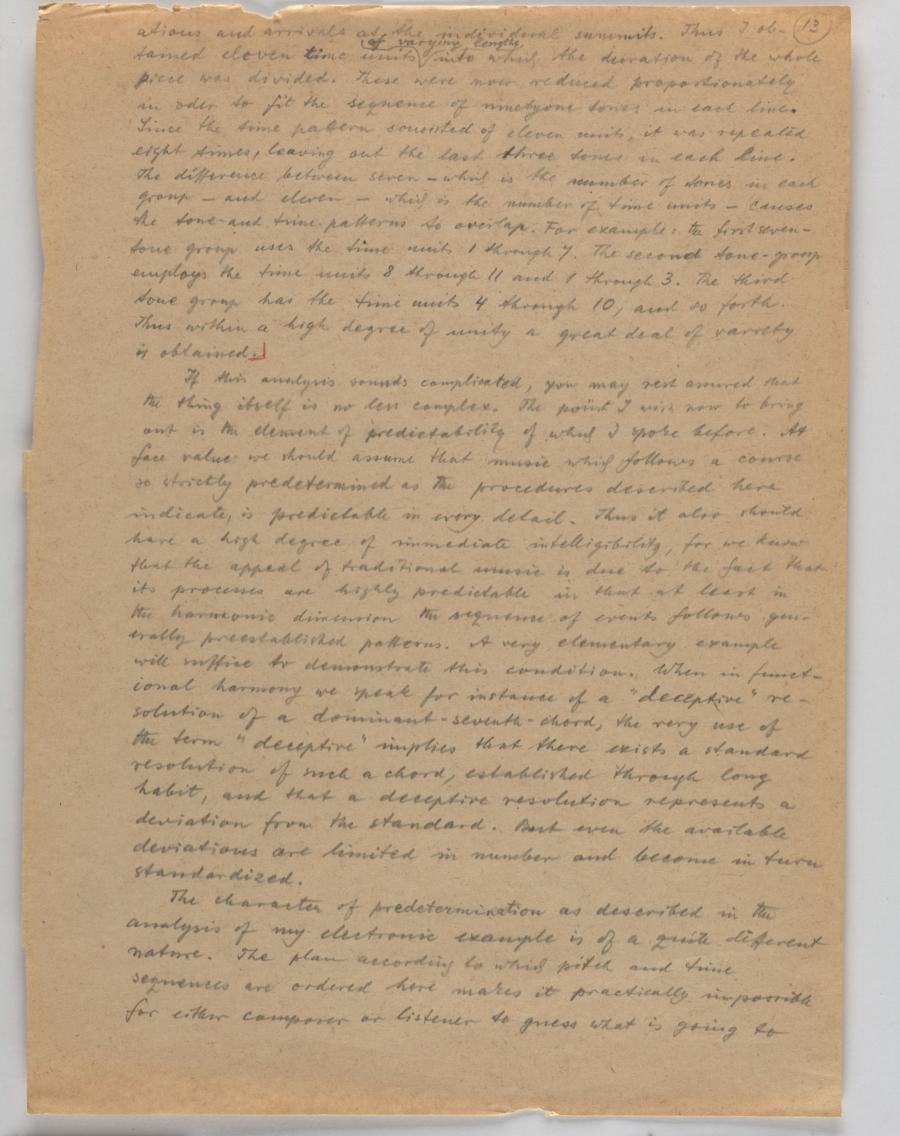 13
ations and arrivals at the individual summits. Thus I ob-
of varying lengths
tained eleven time units into which the duration of the whole
piece was divided. These were now reduced proportionately
in oder to fit the sequence of ninetyone tones in each line.
Since the time pattern consisted of eleven units, it was repeated
eight times, leaving out the last three tones in each line.
The difference between seven – which is the number of tones in each
group – and eleven – which is the number of time units – causes
the tone-and time-patterns to overlap. For example: the first seven-
tone group uses the time units 1 through 7. The second tone-group
employs the time units 8 through 11 and 1 through 3. The third
tone group has the time units 4 through 10, and so forth.
Thus within a high degree of unity a great deal of variety
is obtained.
If this analysis sounds complicated, you may rest assured that
the thing itself is no less complex. The point I wish now to bring
out is the element of predictability of which I spoke before. At
face value we should assume that music which follows a course
so strictly predetermined as the procedures described here
indicate, is predictable in every detail. Thus it also should
have a high degree of immediate intelligibility, for we know
that the appeal of traditional music is due to the fact that
its processes are highly predictable in that at least in
the harmonic dimension the sequence of events follows gen-
erally preestablished patterns. A very elementary example
will suffice to demonstrate this condition. When in funct-
ional harmony we speak for instance of a "deceptive" re-
solution of a dominant-seventh-chord, the very use of
the term "deceptive" implies that there exists a standard
resolution of such a chord, established through long
habit, and that a deceptive resolution represents a
deviation from the standard. But even the available
deviations are limited in number and become in turn
standardized.
The character of predetermination as described in the
analysis of my electronic example is of a quite different
nature. The plan according to which pitch and time
sequences are ordered here makes it practically impossible
for either composer or listener to guess what is going to